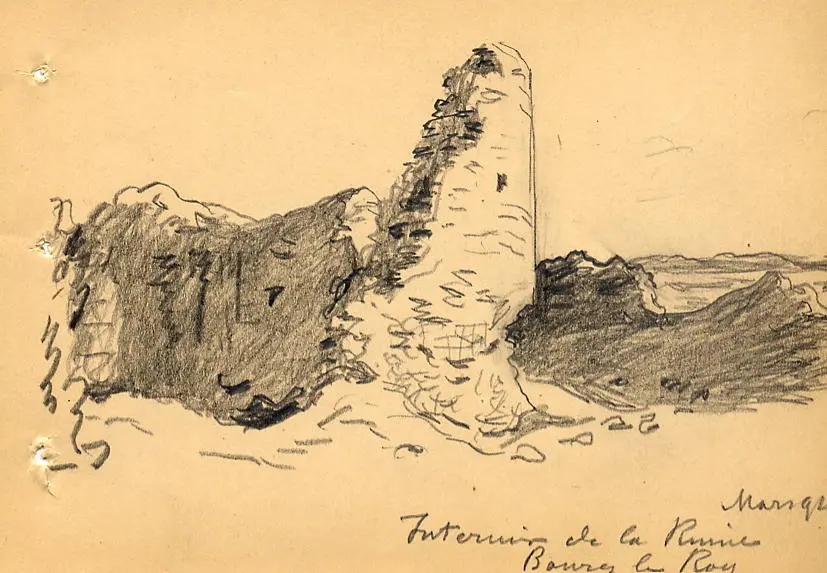 Mars 9
Interieur de la Ruine
Bourg le Roy